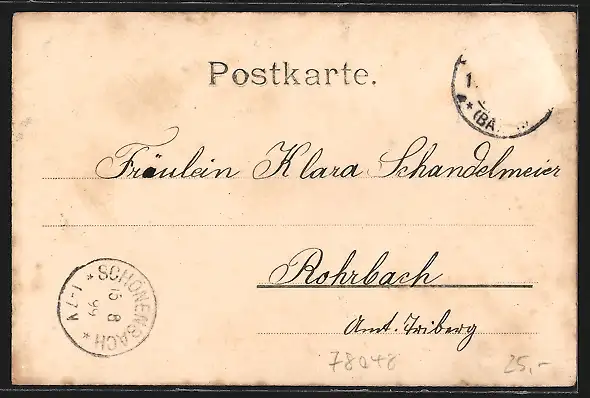 Postkarte.
1.
* (BA
Fräulein Klara Schandelmeier
Rohrbach
Amt. Triberg
* SCHÖNENBACH *
15 8
99
1-7 V
78048
25,-